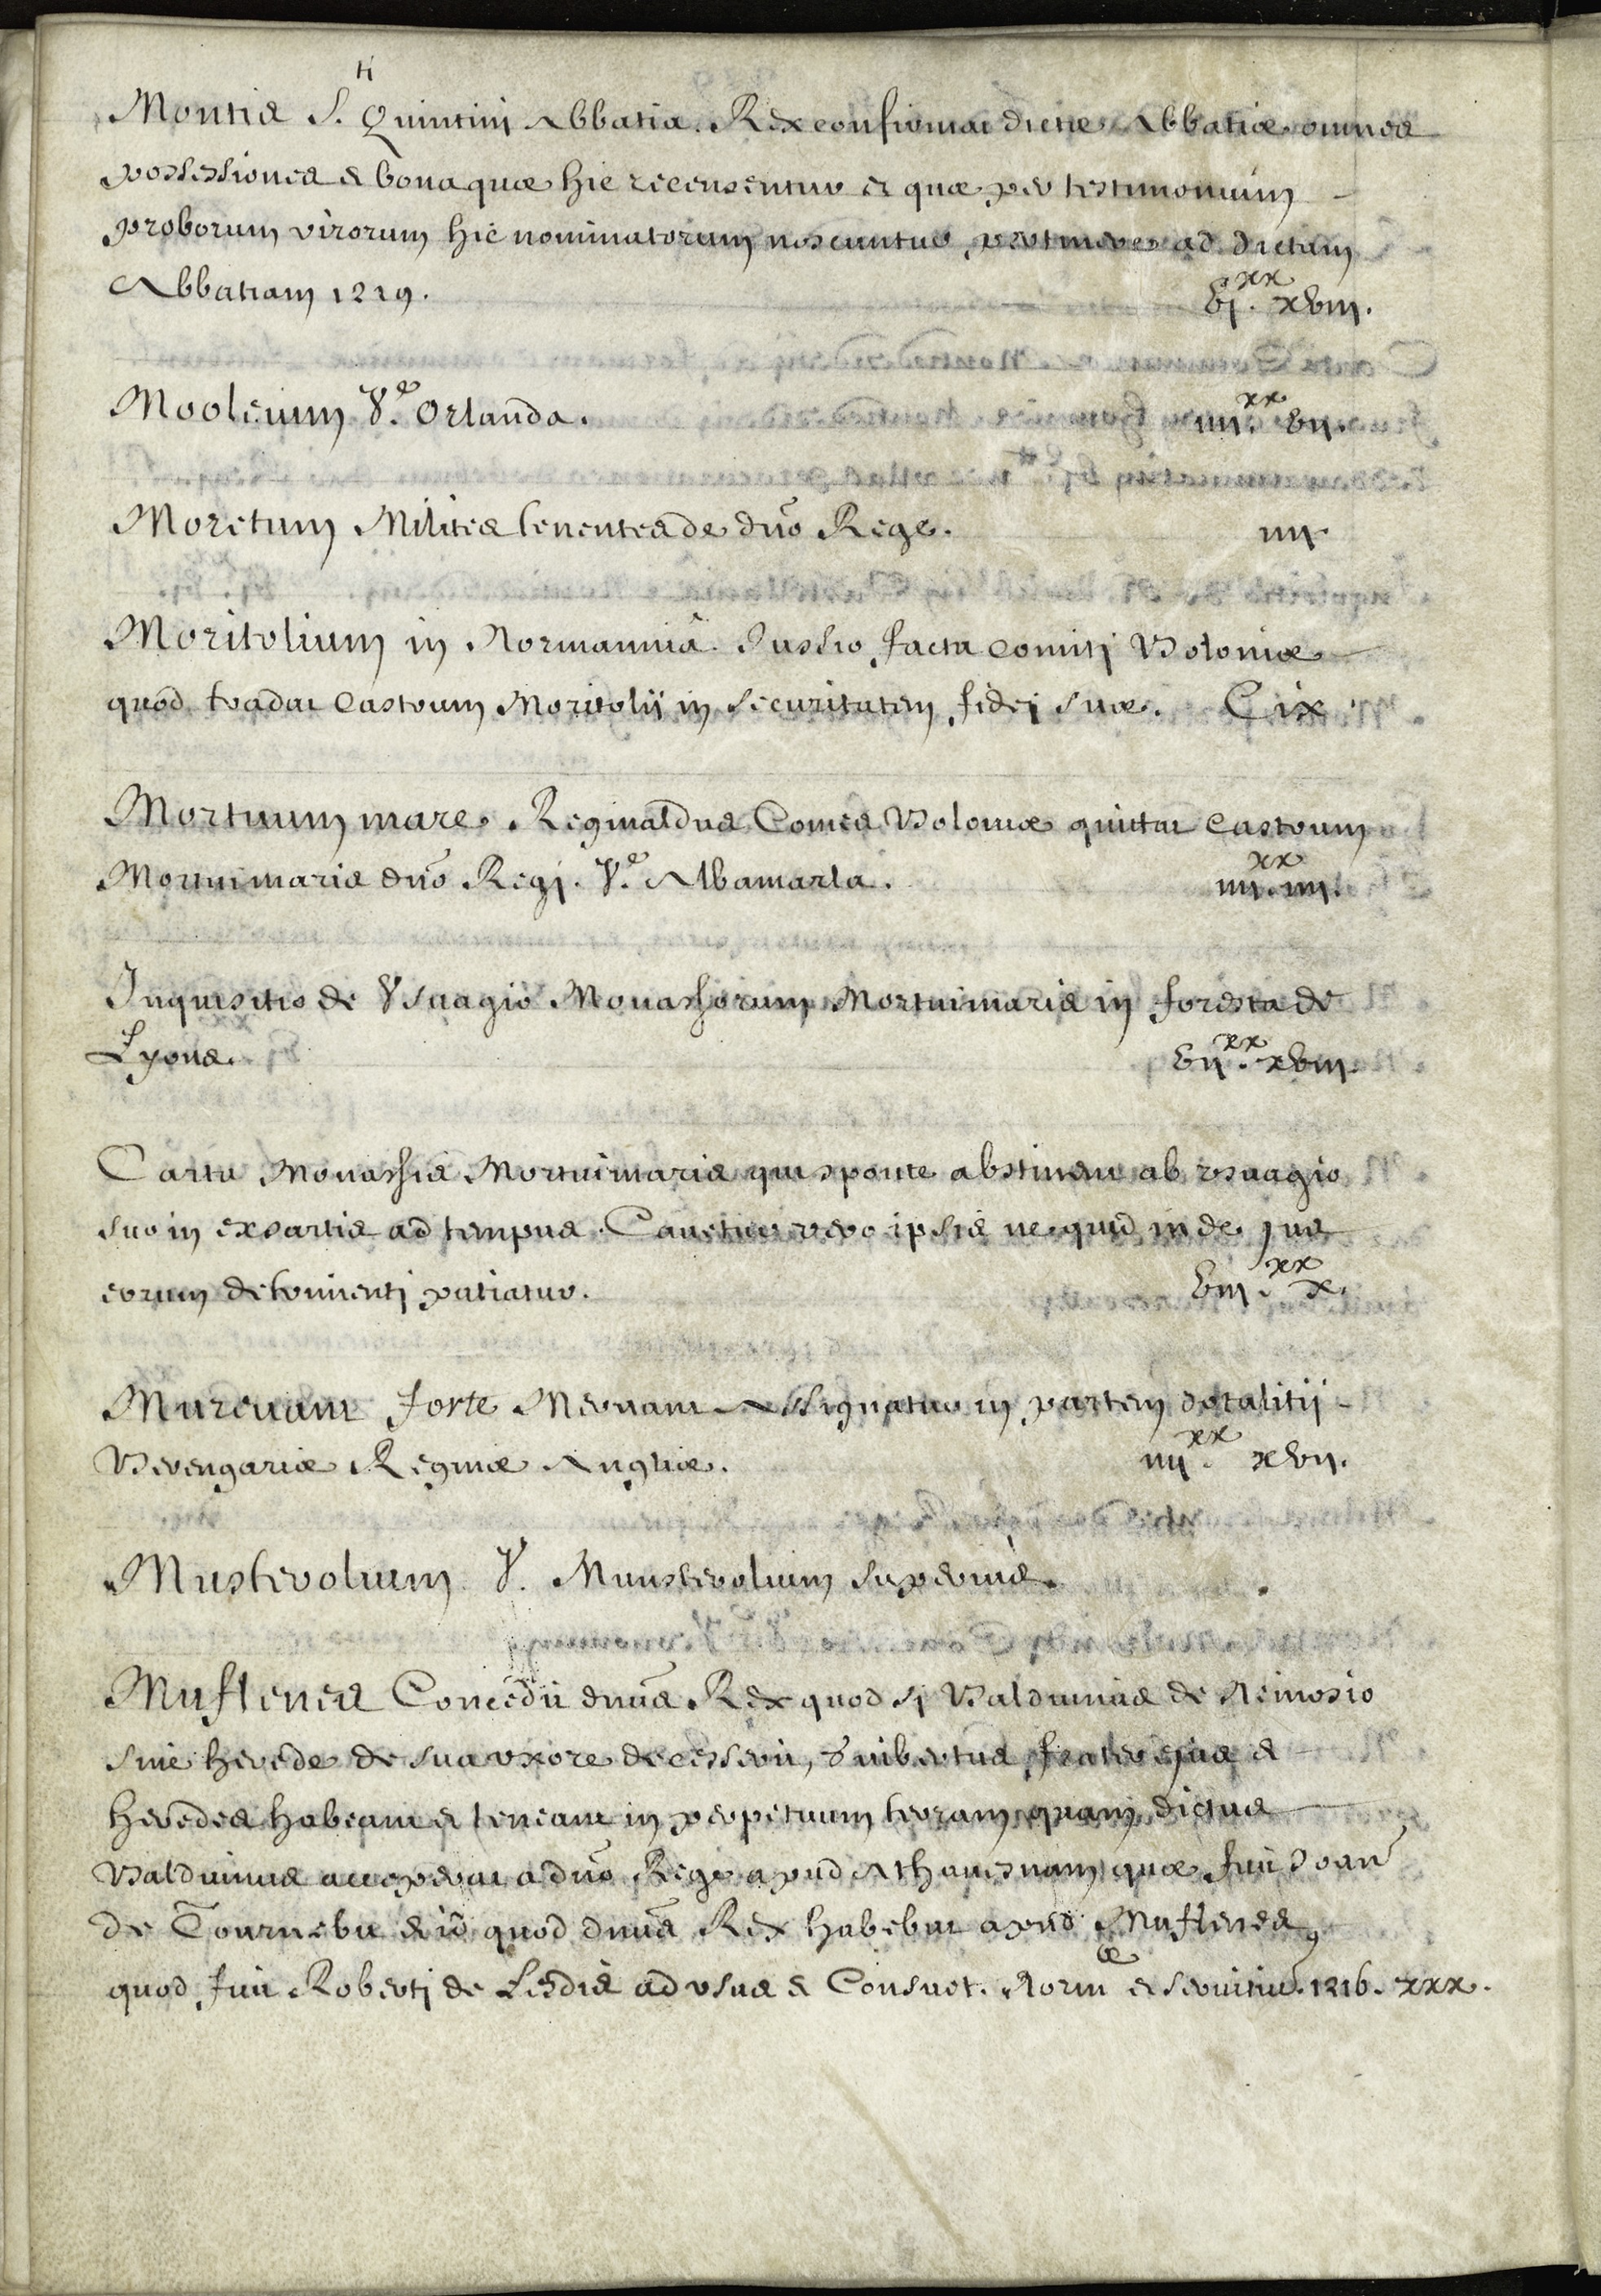 Montis S.ti Quintini Abbatia. Rex confirmat dictæ Abbatiæ omnes
possessiones & bona quæ hic recensentur et quæ per testimonium
proborum virorum hic nominatorum noscuntur pertinere ad dictam
Abbatiam 1219. vj.xx xviij.
Mooleium V.e Orlanda. iiij.xx vij.
Moretum Milites tenentes de dno Rege. iij.
Moritolium in Normannia. Jussio facta comiti Boloniæ
quod tradat castrum Moritolii in securitatem fidei suæ. Cix.
Mortuum mare. Reginaldus Comes Boloniæ quittat castrum
Mortuimaris dno Regi. V.e Albamarla. iiij.xx iiij.
Inquisitio de Vsuagio Monachorum Mortuimaris in foresta de
Lyons. vij.xx xviij.
Carta Monachis Mortuimaris qui sponte abstinent ab vsuagio
suo in exsartis ad tempus. Cauetur vero ipsis ne quid inde jus
eorum detrimenti patiatur. viij.xx x.
Murenam forte Meruam Assignatur in partem dotalitii
Berengariæ Reginæ Angliæ. iiij.xx xvij.
Musterolium V. Munsterolium superius.
Muflenes Concedit dnus Rex quod si Balduinus de
sine herede de sua vxore decesserit, frater ejus &
heredes habeant et teneant in perpetuum terram quam dictus
Balduinus acceperat a dno Rege apud quæ fuit Joan
de Tournebu & id quod dnus Rex habebat apud Muflenes,
quod fuit Roberti de ad vsus & Consuet. Norm.æ et seruitiū. 1216. xxx.